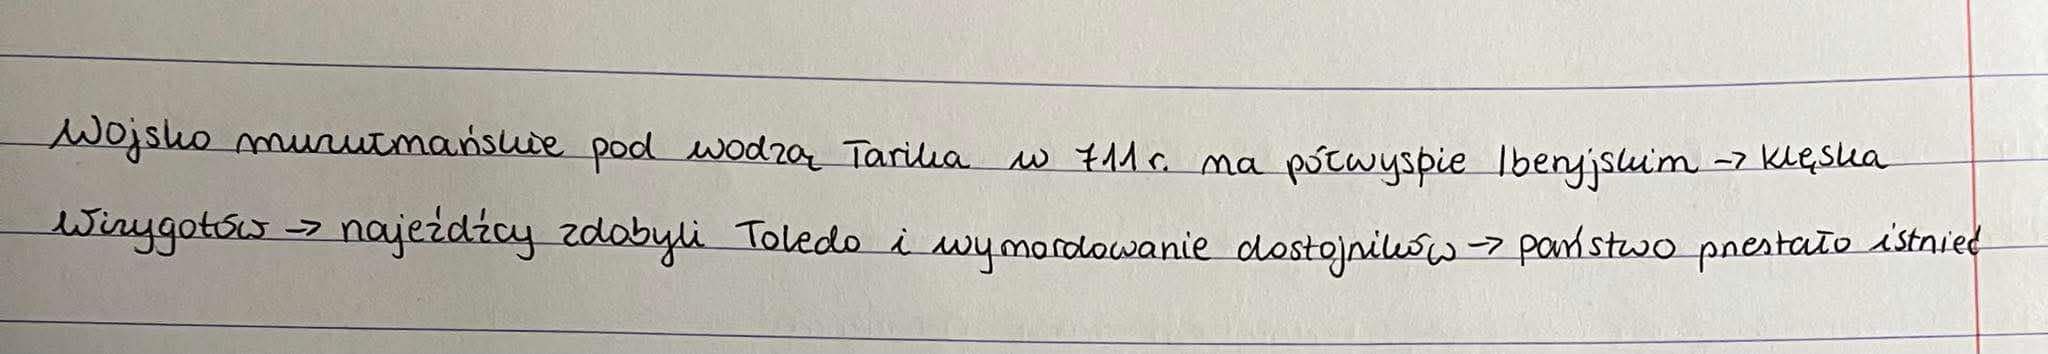 Wojsko muzułmańskie pod wodzą Tarika w 711 r. na półwyspie Iberyjskim → klęska
Wizygotów → najeźdźcy zdobyli Toledo i wymordowanie dostojników → państwo przestało istnieć